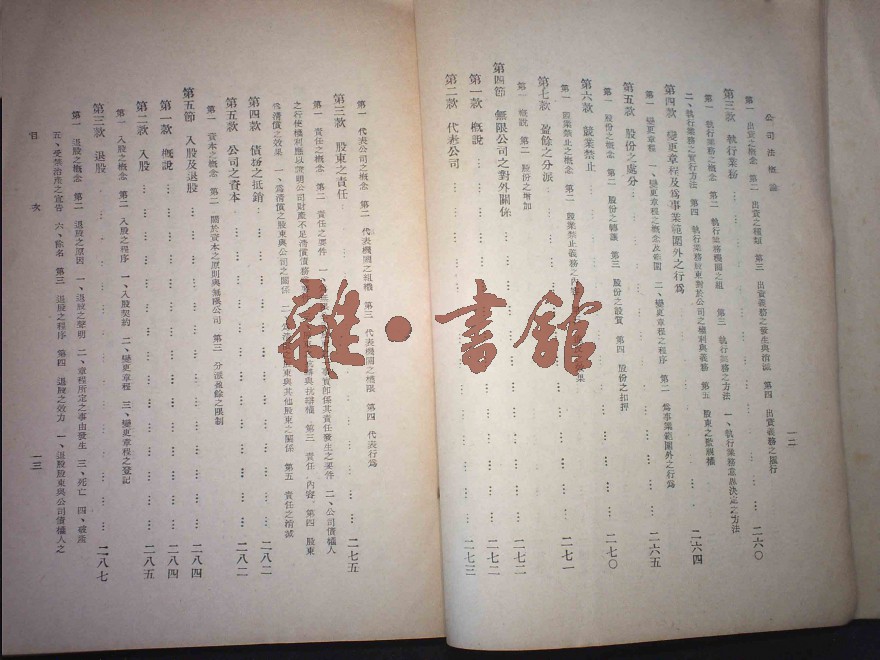 公司法概論
一二
第一 出資之概念 第二 出資之種類 第三 出資義務之發生與消滅 第四 出資義務之履行
第三款 執行業務 … … … … 二六〇
第一 執行業務之概念 第二 執行業務機關之組 第三 執行業務之方法 一、執行業務意思決定之方法
二、執行業務之實行方法 第四 執行業務股東對於公司之權利與義務 第五 股東之監視權
第四款 變更章程及為事業範圍外之行為 … … … 二六四
第一 變更章程 一、變更章程之概念及範圍 二、變更章程之程序 第二 為事業範圍外之行為
第五款 股份之處分 … … … … 二六五
第一 股份之概念 第二 股份之轉讓 第三 股份之設質 第四 股份之扣押
第六款 競業禁止 … … … … 二七〇
第一 競業禁止之概念 第二 競業禁止義務之內
第七款 盈餘之分派 … … … … 二七一
第一 概說 第二 股份之增加
第四節 無限公司之對外關係 … … … … 二七二
第一款 概說 … … … … 二七二
第二款 代表公司 … … … … 二七三
第一 代表公司之概念 第二 代表機關之組織 第三 代表機關之權限 第四 代表行為
第三款 股東之責任 … … … … 二七五
第一 責任之概念 第二 責任之要件 一、 事實即係其責任發生之要件 二、公司債權人
之行使權利應以證明公司財產不足清償債務 與抗辯權 第三 責任 內容 第四 股東
為清償之效果 一、為清償之股東與公司之關係 二、為清 股東與其他股東之關係 第五 責任之消滅
第四款 債務之抵銷 … … … … 二八二
第五款 公司之資本 … … … … 二八二
第一 資本之概念 第二 關於資本之原則與無限公司 第三 分派盈餘之限制
第五節 入股及退股 … … … … 二八四
第一款 概說 … … … … 二八四
第二款 入股 … … … … 二八五
第一 入股之概念 第二 入股之程序 一、入股契約 二、變更章程 三、變更章程之登記
第三款 退股 … … … … 二八七
第一 退股之概念 第二 退股之原因 一、退股之聲明 二、章程所定之事由發生 三、死亡 四、破產
五、受禁治產之宣告 六、除名 第三 退股之程序 第四 退股之效力 一、退股股東與公司債權人之
目次
一三
雜·書館